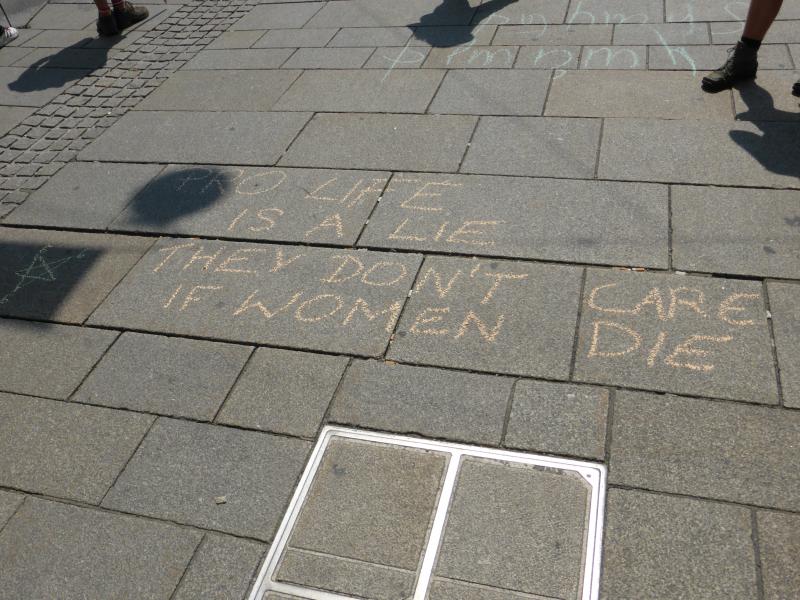 PRO LIFE
IS A LIE
THEY DON'T CARE
IF WOMEN DIE